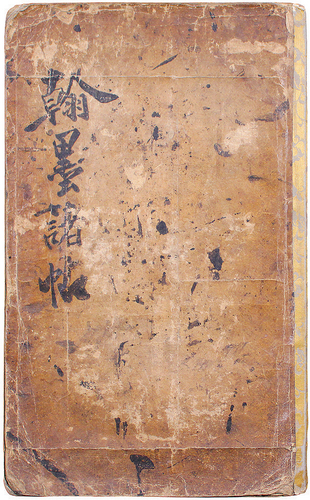 翰墨諸帖